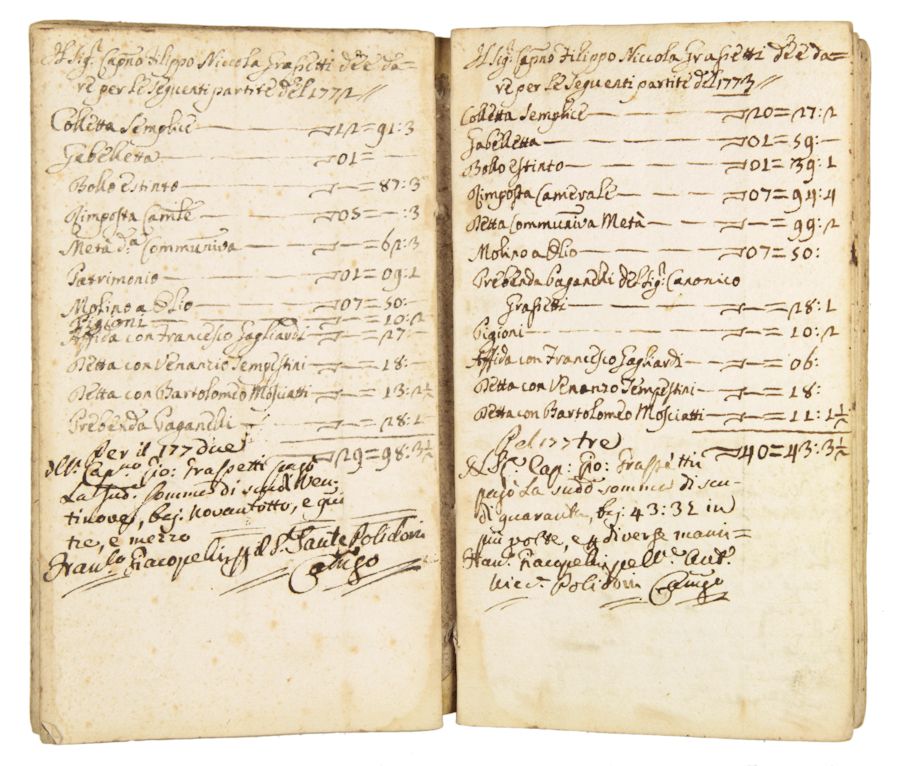 Il Sig.r Cap.no Filippo Niccola Grassetti deè da=
re per le seguenti partite del 1772 //
Colletta Semplice — 12 = 91:3
Gabelletta — 01 = —
Bollo estinto — = 87:3
Rimposta Cam.le — 05 = — :3
Metà d.a Communiva — = 62:3
Patrimonio — 01 = 09:1
Molino a Olio — 07 = 50:
Pigioni — = 10:2
Affida con Francesco Gagliardi — = 27:
Detta con Venancio Tempestini — = 18:
Detta con Bartolomeo Mosciatti — = 13:2½
Prebenda Paganelli — = 28:1
29 = 98:3½
Per il 177due
Cap.no Gio: Graspetti pagò
La sud.a somma di scudi Ven-
tinove, baj: Novantotto, e qui
tre, e mezzo
Fran.co Giacopelli p il S.r Sante Polidori
Camgo
Il Sig.r Cap.no Filippo Niccola Grassetti deè da=
re per le sequenti partite del 1773 //
Colletta Semplice — 20 = 27:2
Gabelletta — 01 = 59: —
Bollo estinto — 01 = 39:1
Rimposta Camerale — 07 = 94:4
Detta Communiva Metà — = 99:2
Molino a Olio — 07 = 50:
Prebenda Paganelli del Sig.r Canonico
Grassetti — = 28:1
Pigioni — = 10:2
Affida con Francesco Gagliardi — = 06:
Detta con Venanzo Tempestini — = 18:
Detta con Bartolomeo Mosciatti — = 11:1½
40 = 43:3½
Pel 177tre
Cap: Gio: Graspetti
pagò La sud.a somma di scu-
di quaranta, baj: 43:3½ in
più volte, e p diverse mani=
Fran.co Giacopelli pell.o Ant.o
Nicc.a Polidori Camgo